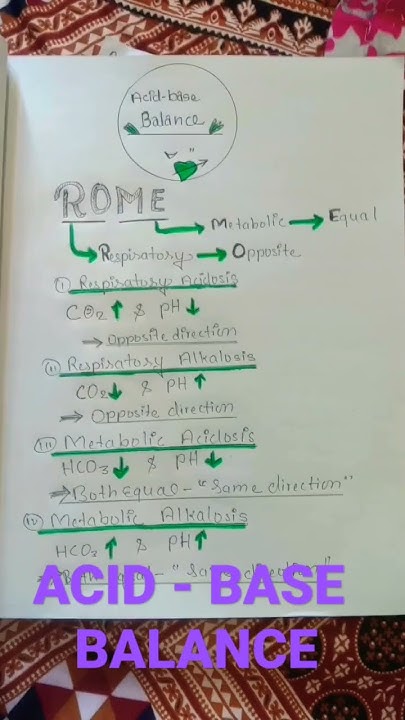 Acid-base
Balance
ROME
Metabolic → Equal
Respiratory → Opposite
(i) Respiratory Acidosis
CO2 ↑ & PH ↓
⇒ Opposite direction
(ii) Respiratory Alkalosis
CO2 ↓ & PH ↑
⇒ Opposite direction
(iii) Metabolic Acidosis
HCO3 ↓ & PH ↓
⇒ Both Equal - "Same direction"
(iv) Metabolic Alkalosis
HCO3 ↑ & PH ↑
⇒ Both Equal - "Same direction"
ACID - BASE
BALANCE